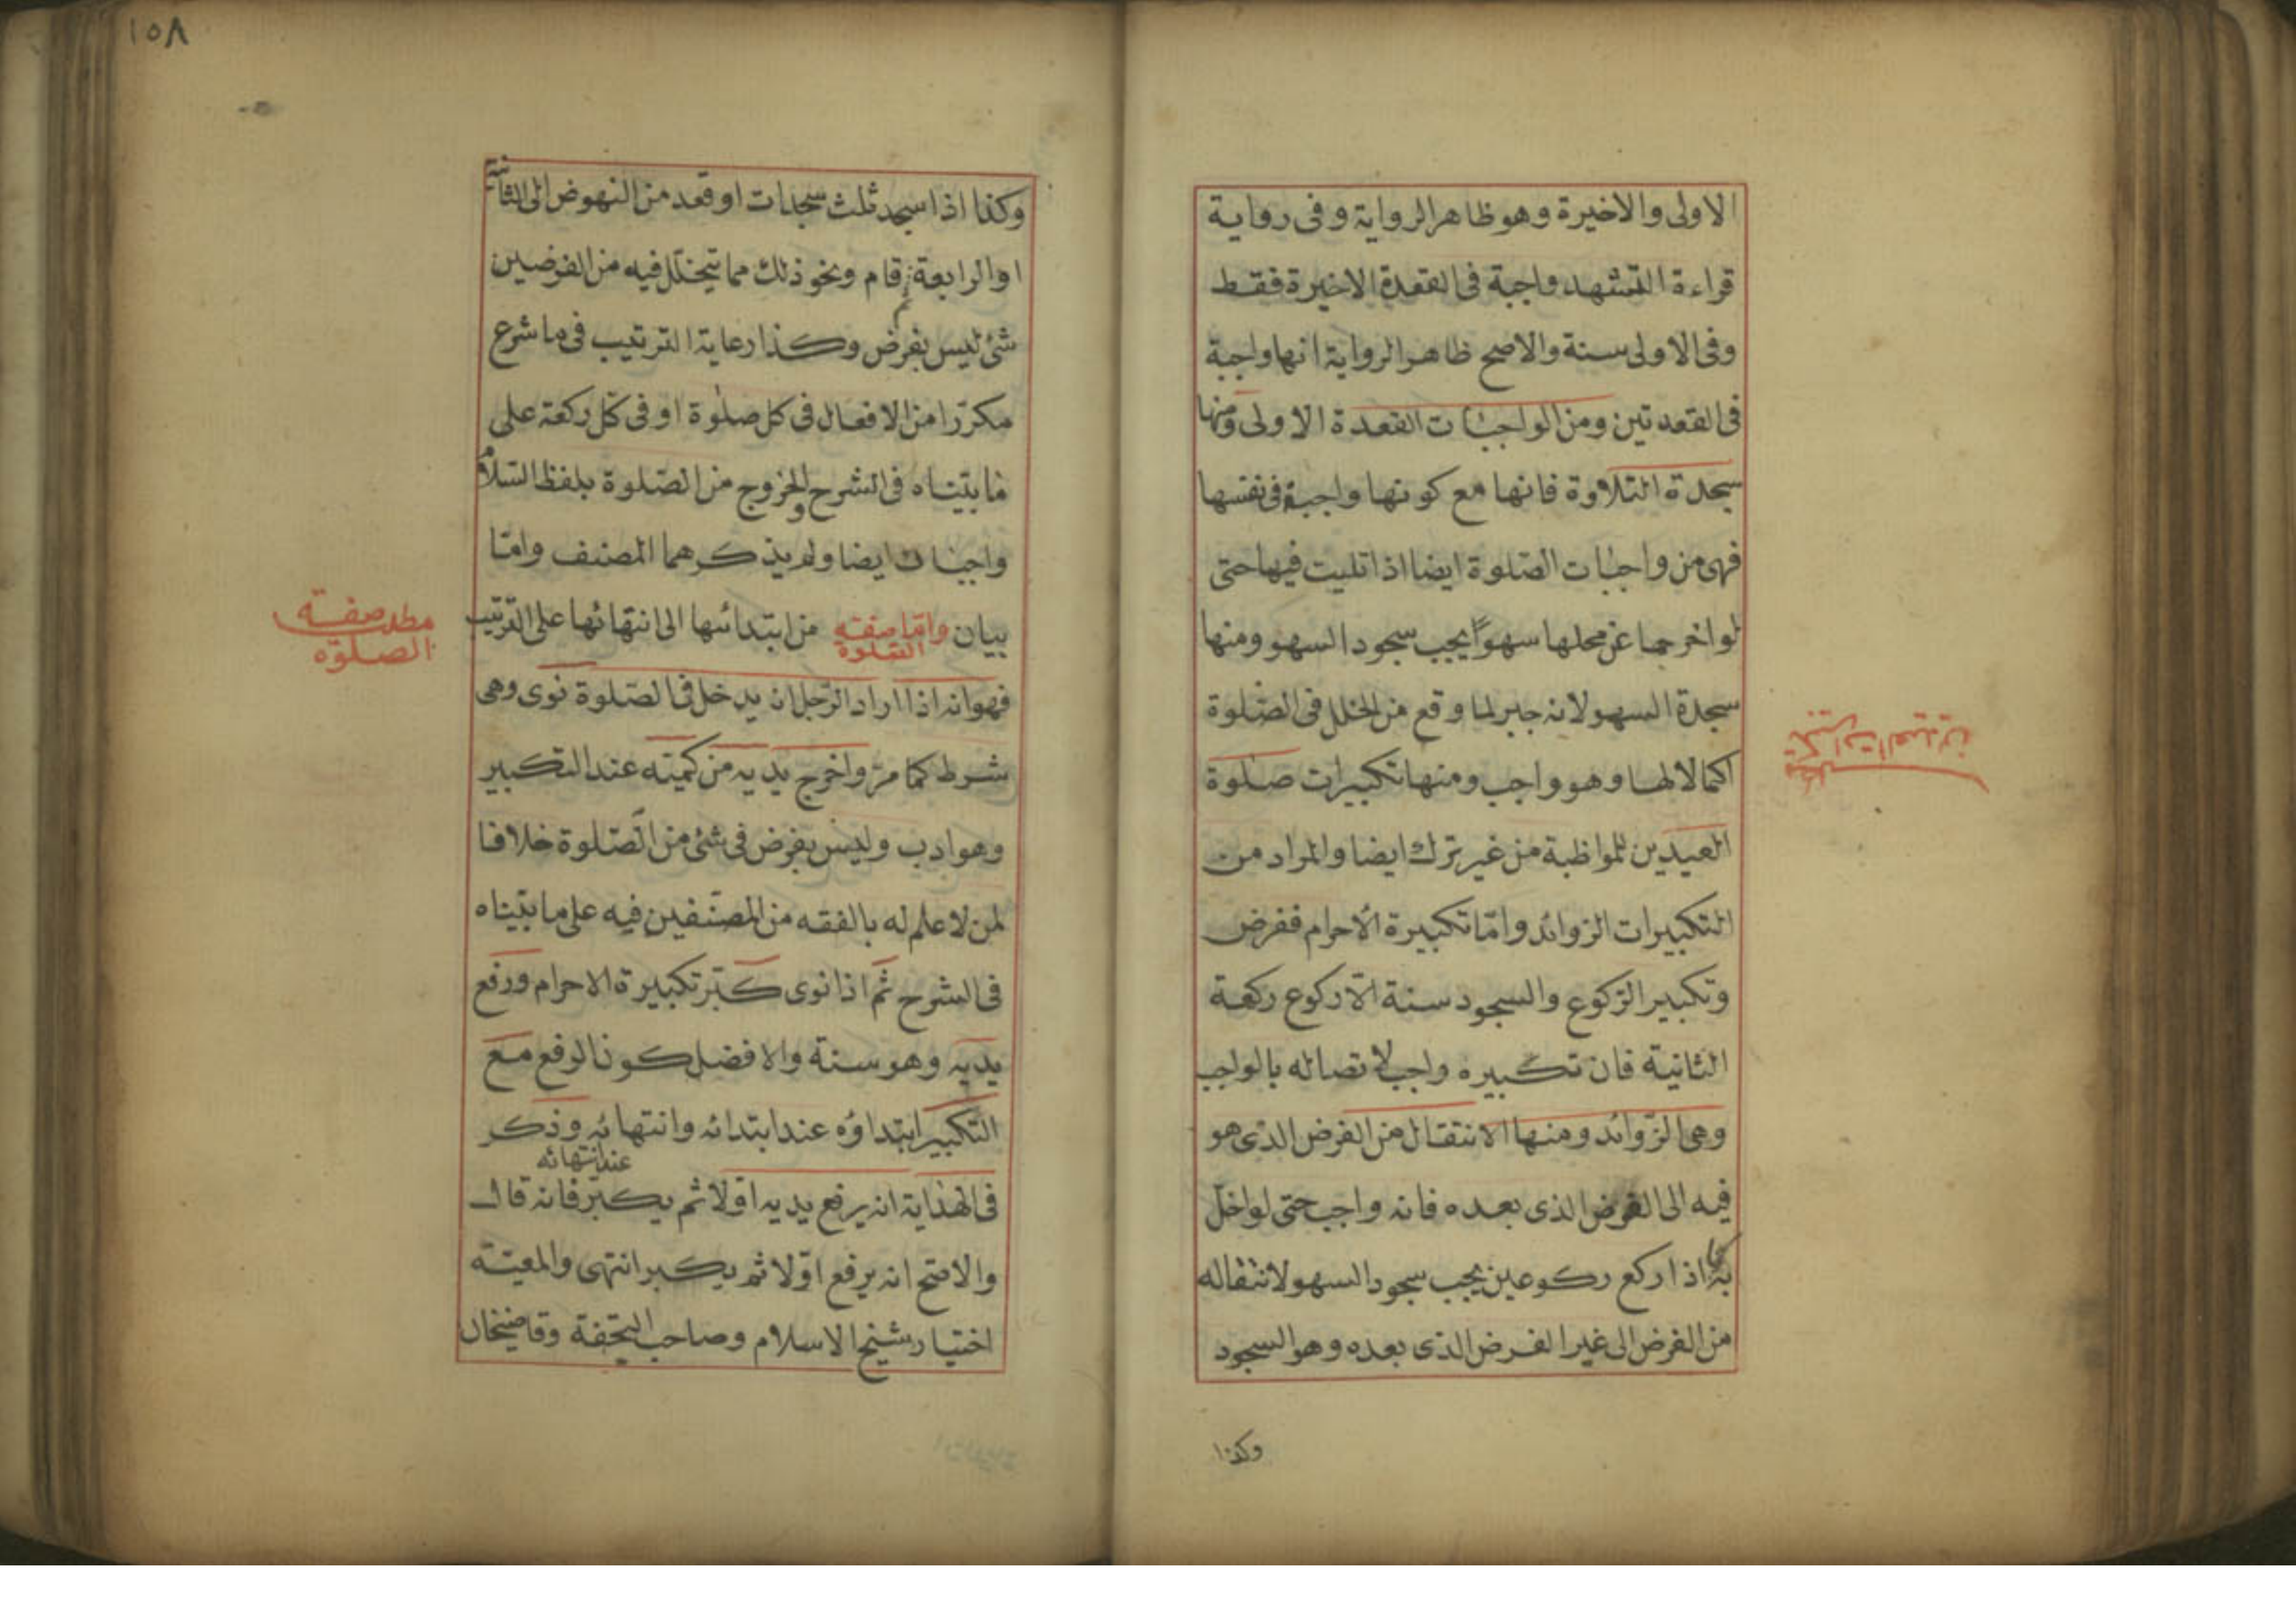 الاولى والاخيرة وهو ظاهر الرواية وفى رواية
قراءة التشهد واجبة فى القعدة الاخيرة فقط
وفى الاولى سنة والاصح ظاهر الرواية انها واجبة
فى القعدتين ومن الواجبات القعدة الاولى ومنها
سجدة التلاوة فانها مع كونها واجبة فى نفسها
فهى من واجبات الصلوة ايضا اذا تليت فيها حتى
لو اخرجها عن محلها سهوًا يجب سجود السهو ومنها
سجدة السهو لانه جبر لما وقع من الخلل فى الصلوة
اكمالا لها وهو واجب ومنها تكبيرات صلوة
العيدين للمواظبة من غير ترك ايضا والمراد من
التكبيرات الزوائد وامّا تكبيرة الاحرام ففرض
وتكبير الركوع والسجود سنة الا ركوع ركعة
الثانية فان تكبيره واجب لاتصاله بالواجب
وهى الزوائد ومنها الانتقال من الفرض الذى هو
فيه الى الفرض الذى بعده فانه واجب حتى لو اخلّ
به كما اذا ركع ركوعين يجب سجود السهو لانتقاله
من الفرض الى غير الفرض الذى بعده وهو السجود
وكذا
تكبيرات العيدين
١٥٨
وكذا اذا سجد ثلث سجدات او قعد من النهوض الى الثانية
او الرابعة ثم قام ونحو ذلك مما يتخلل فيه من الفرضين
شئ ليس بفرض وكذا رعاية الترتيب فى ما شرع
مكرّرا من الافعال فى كل صلوة او فى كل ركعة على
ما بيّناه فى الشرح والخروج من الصلوة بلفظ السلام
واجبات ايضا ولم يذكرهما المصنف وامّا
بيان وامّا صفة الصلوة من ابتدائها الى انتهائها على الترتيب
فهو انه اذا اراد الرّجل ان يدخل فى الصّلوة نوى وهى
شرط كما مرّ واخرج يديه من كمّيه عند التكبير
وهو ادب وليس بفرض فى شئ من الصّلوة خلافا
لمن لا علم له بالفقه من المصنّفين فيه على ما بيّناه
فى الشرح ثم اذا نوى كبّر تكبيرة الاحرام ورفع
يديه وهو سنة والافضل كون الرفع مع
التكبير ابتداؤه عند ابتدائه وانتهائه وذكر
عند انتهائه
فى الهداية انه يرفع يديه اوّلا ثم يكبّر فانه قال
والاصح انه يرفع اوّلا ثم يكبر انتهى والمعيّة
اختيار شيخ الاسلام وصاحب التحفة وقاضيخان
مطلب صفة
الصلوة